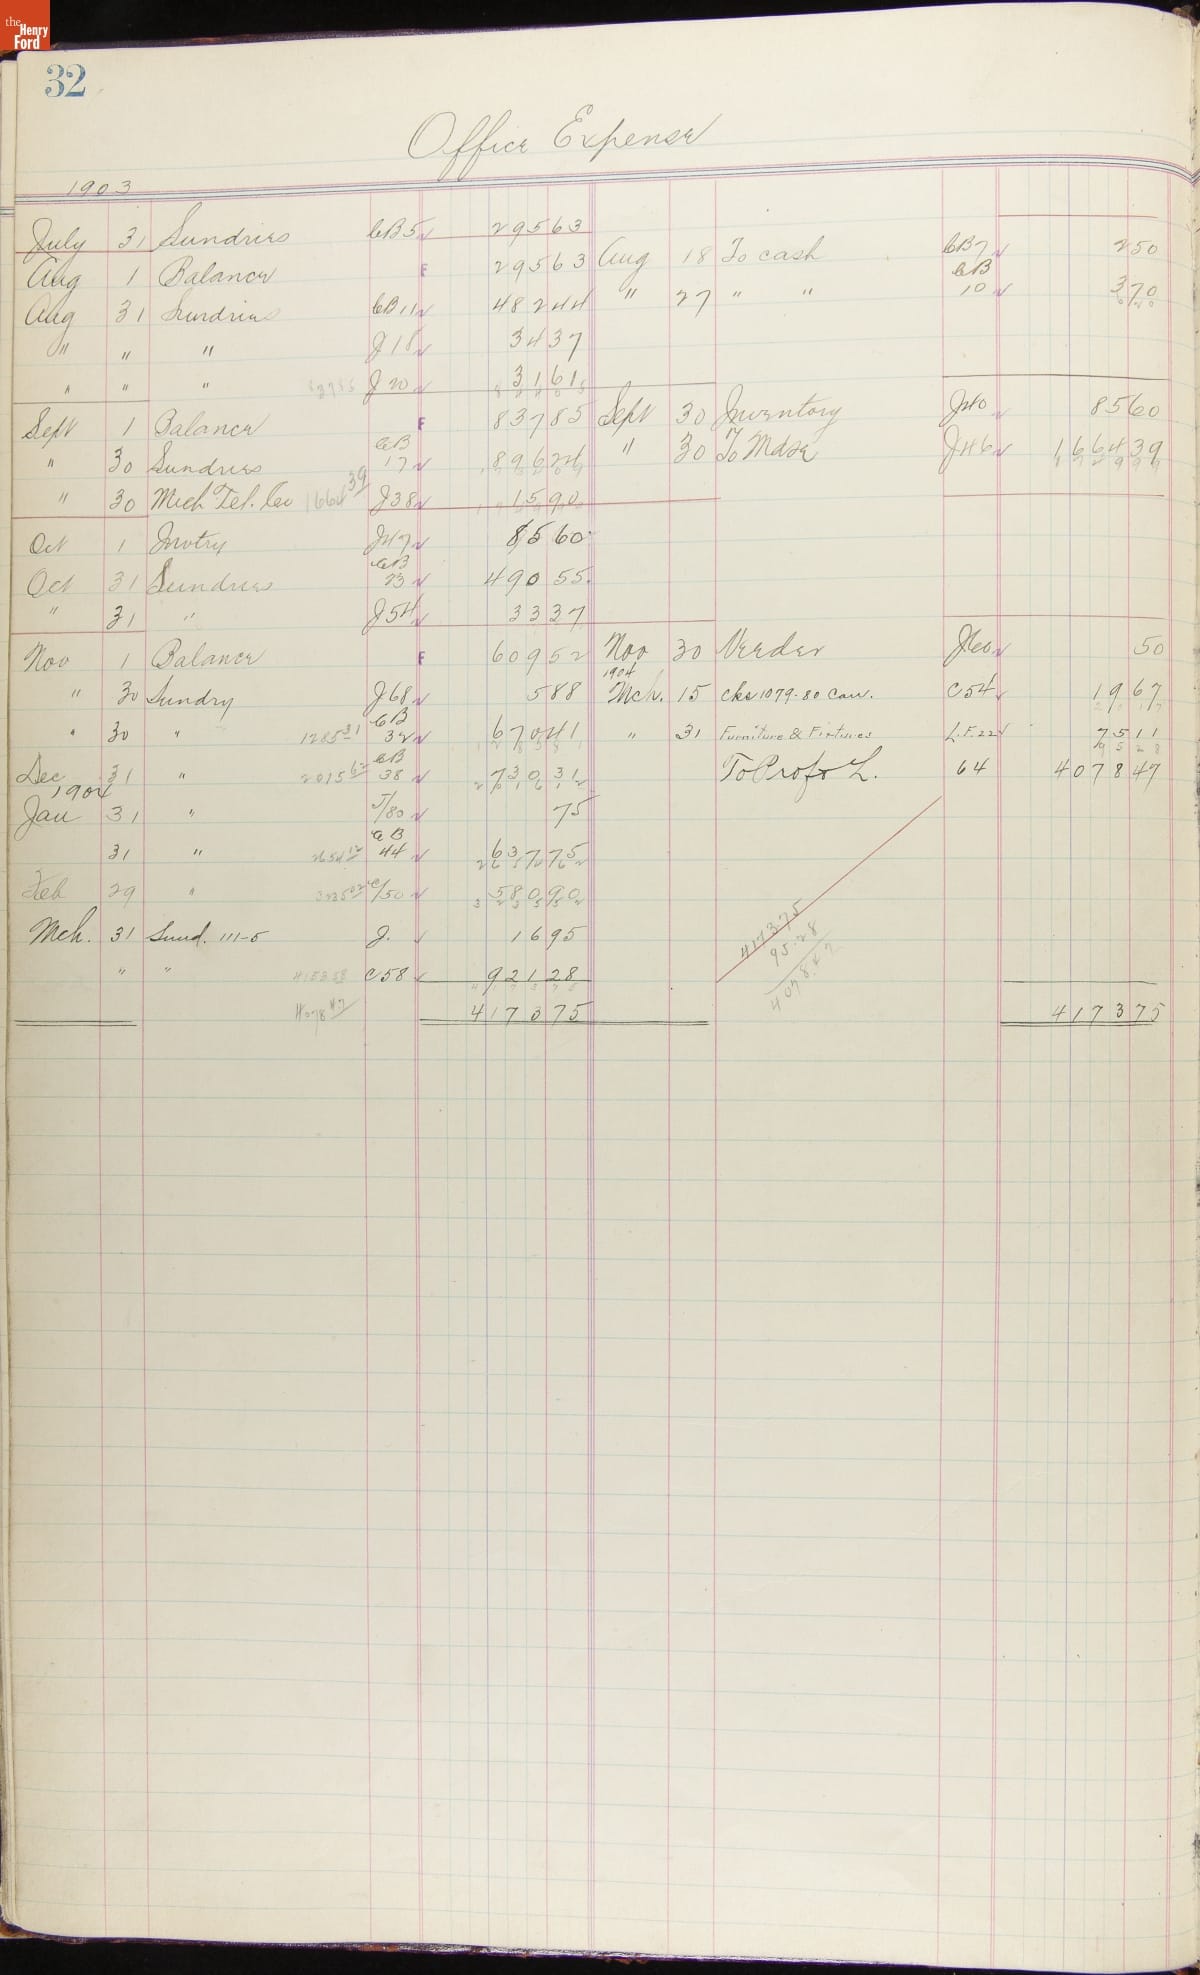 the
Henry
Ford
32
Office Expense
1903
July 31 Sundries CB5 295 63
Aug 1 Balance F 295 63 Aug 18 To cash CB7 2 50
Aug 31 Sundries CB11 482 44 " 27 " " CB 10 3 70
" " " J18 34 37
" " " 837 85 J20 31 61
Sept 1 Balance F 837 85 Sept 30 Inventory J40 85 60
" 30 Sundries CB 17 896 24 " 30 To Mdse J46 1664 39
" 30 Mich Tel. Co 1664 39 J38 15 90
Oct 1 Invtry J47 85 60
Oct 31 Sundries CB 23 490 55
" 31 " J54 33 37
Nov 1 Balance F 609 52 Nov 30 Veeder J60 50
" 30 Sundry J68 5 88 1904 Mch. 15 cks 1079-80 Can. C54 19 67
" 30 " 1285 31 CB 32 670 41 " 31 Furniture & Fixtures L.F.22 75 11
Dec 31 " 2015 62 CB 38 730 31 To Prof & L. 64 4078 47
1904
Jan 31 " J/80 75
31 " 2654 12 CB 44 637 75
Feb 29 " 3235 02 C/50 580 90
Mch. 31 Sund. 111-5 J. 16 95
4173.75
95.28
4078.47
" " C58 921 28
4078 47 4173 75 4173 75